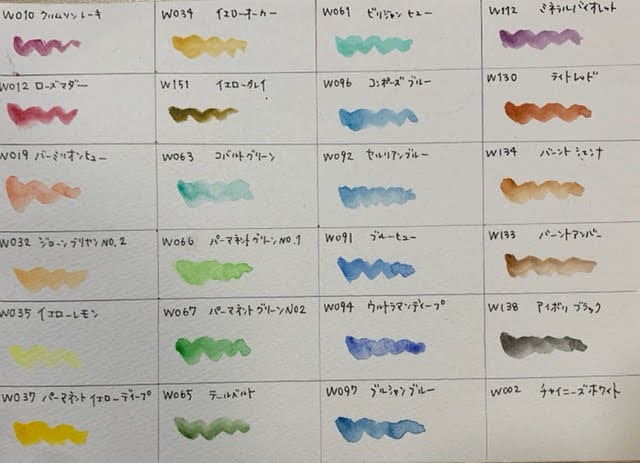 W010 クリムソンレーキ
W034 イエローオーカー
W061 ビリジャンヒュー
W112 ミネラルバイオレット
W012 ローズマダー
W151 イエローグレイ
W096 コンポーズブルー
W130 ライトレッド
W019 バーミリオンヒュー
W063 コバルトグリーン
W092 セルリアンブルー
W134 バーントシェンナ
W032 ジョーンブリヤンNO.2
W066 パーマネントグリーンNO.1
W091 ブルーヒュー
W133 バーントアンバー
W035 イエローレモン
W067 パーマネントグリーンNO2
W094 ウルトラマンディープ
W138 アイボリブラック
W037 パーマネントイエローディープ
W065 テールベルト
W097 プルシャンブルー
W002 チャイニーズホワイト